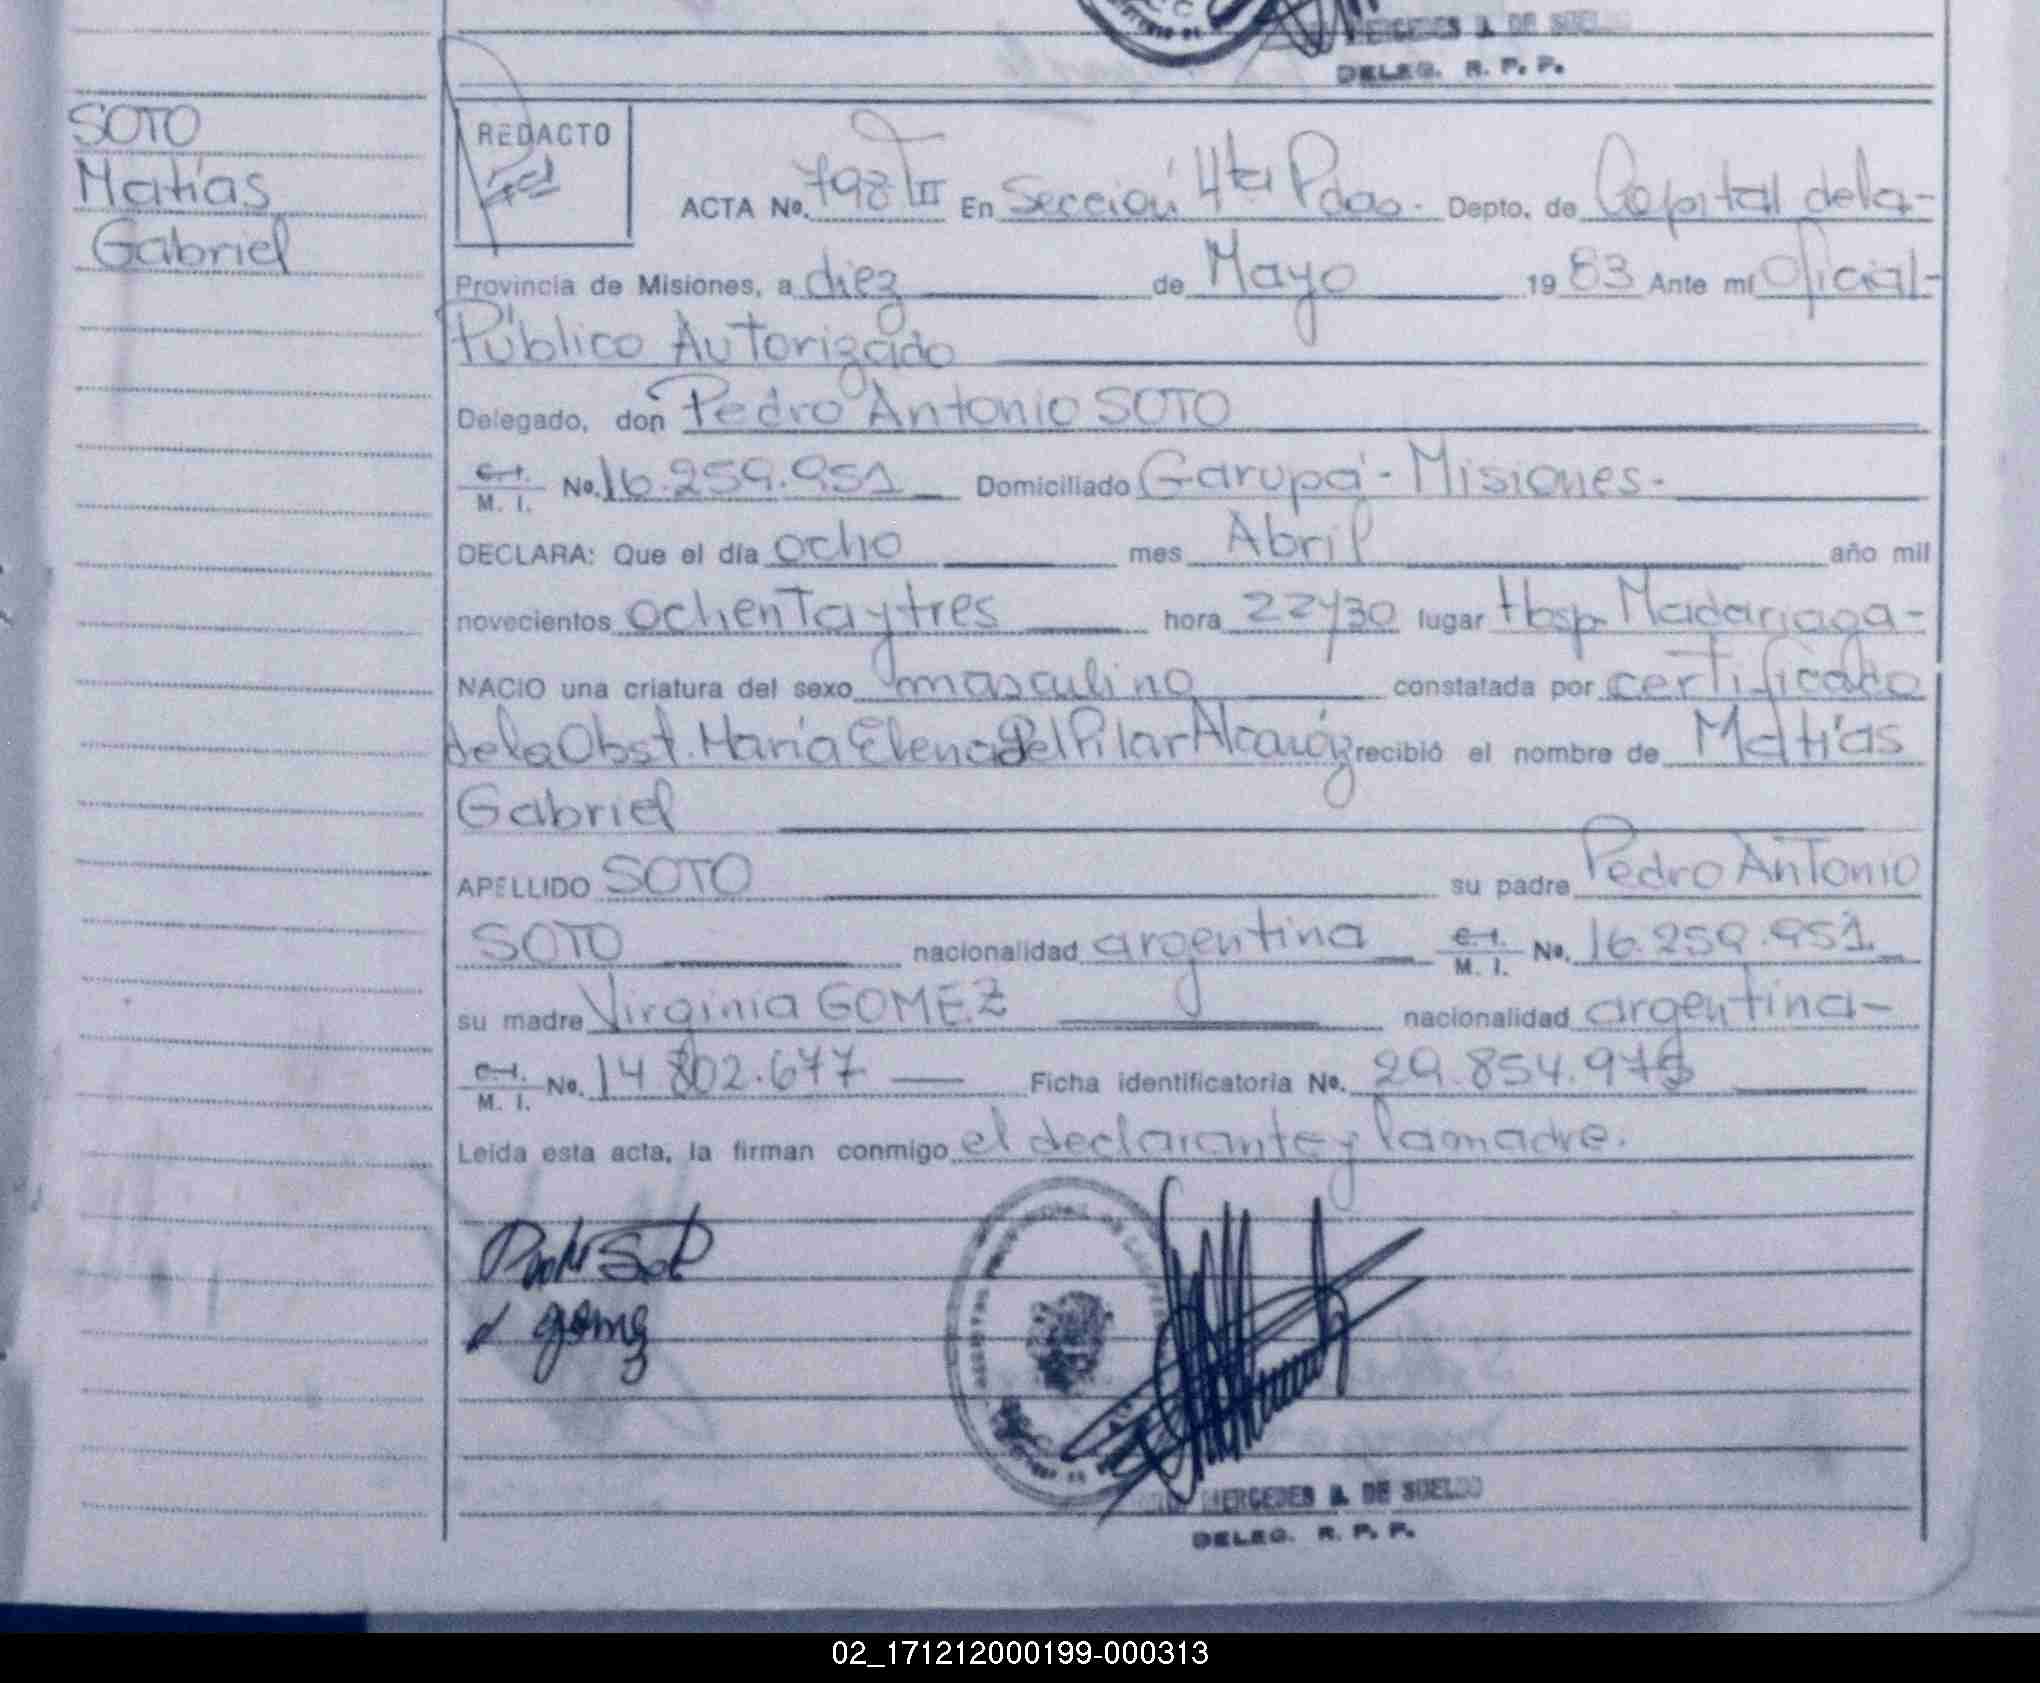 MERCEDES A. DE SUELDO
DELEG. R. P. P.
SOTO
Matías
Gabriel
REDACTO
ACTA No. 798 TIII En Sección 4ta Pdas. Depto. de Capital dela-
Provincia de Misiones, a diez de Mayo 19 83 Ante mí Oficial-
Público Autorizado
Delegado, don Pedro Antonio SOTO
C.I. M. I. No. 16.259.951 Domiciliado Garupá - Misiones.
DECLARA: Que el día ocho mes Abril año mil
novecientos ochentaytres hora 22y30 lugar Hosp. Madariaga-
NACIO una criatura del sexo masculino constatada por certificado
dela Obst. María Elena del Pilar Alcaráz recibió el nombre de Matías
Gabriel
APELLIDO SOTO su padre Pedro Antonio
SOTO nacionalidad argentina C.I. M. I. No. 16.259.951
su madre Virginia GOMEZ nacionalidad argentina-
C.I. M. I. No. 14.802.677 Ficha identificatoria No. 29.854.975
Leída esta acta, la firman conmigo el declarante y la madre.
gomez
MERCEDES A. DE SUELDO
DELEG. R. P. P.
02_171212000199-000313